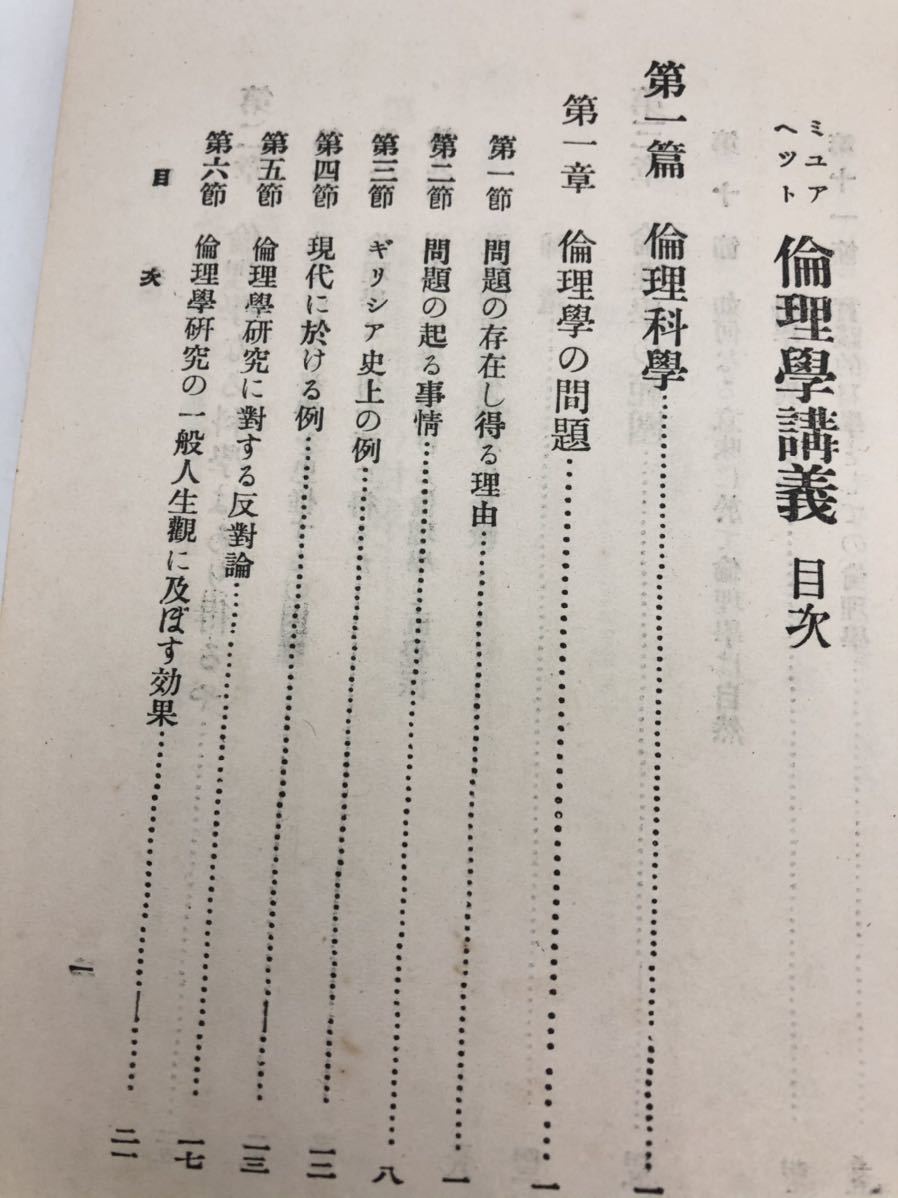 ミユア
ヘツト
倫理學講義 目次
第一篇 倫理科學……一
第一章 倫理學の問題……一
第一節 問題の存在し得る理由……一
第二節 問題の起る事情……八
第三節 ギリシア史上の例……一二
第四節 現代に於ける例……一三
第五節 倫理學研究に對する反對論……一七
第六節 倫理學研究の一般人生觀に及ぼす効果……二一
目次
一